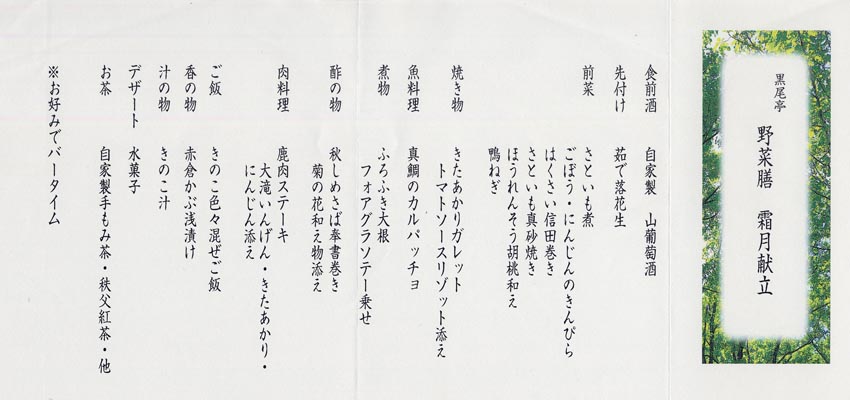 黒尾亭
野菜膳　霜月献立
食前酒　自家製　山葡萄酒
先付け　茹で落花生
前菜　さといも煮
ごぼう・にんじんのきんぴら
はくさい信田巻き
さといも真砂焼き
ほうれんそう胡桃和え
鴨ねぎ
焼き物　きたあかりガレット
トマトソースリゾット添え
魚料理　真鯛のカルパッチョ
煮物　ふろふき大根
フォアグラソテー乗せ
酢の物　秋しめさば奉書巻き
菊の花和え物添え
肉料理　鹿肉ステーキ
大滝いんげん・きたあかり・
にんじん添え
ご飯　きのこ色々混ぜご飯
香の物　赤倉かぶ浅漬け
汁の物　きのこ汁
デザート　水菓子
お茶　自家製手もみ茶・秩父紅茶・他
※お好みでバータイム